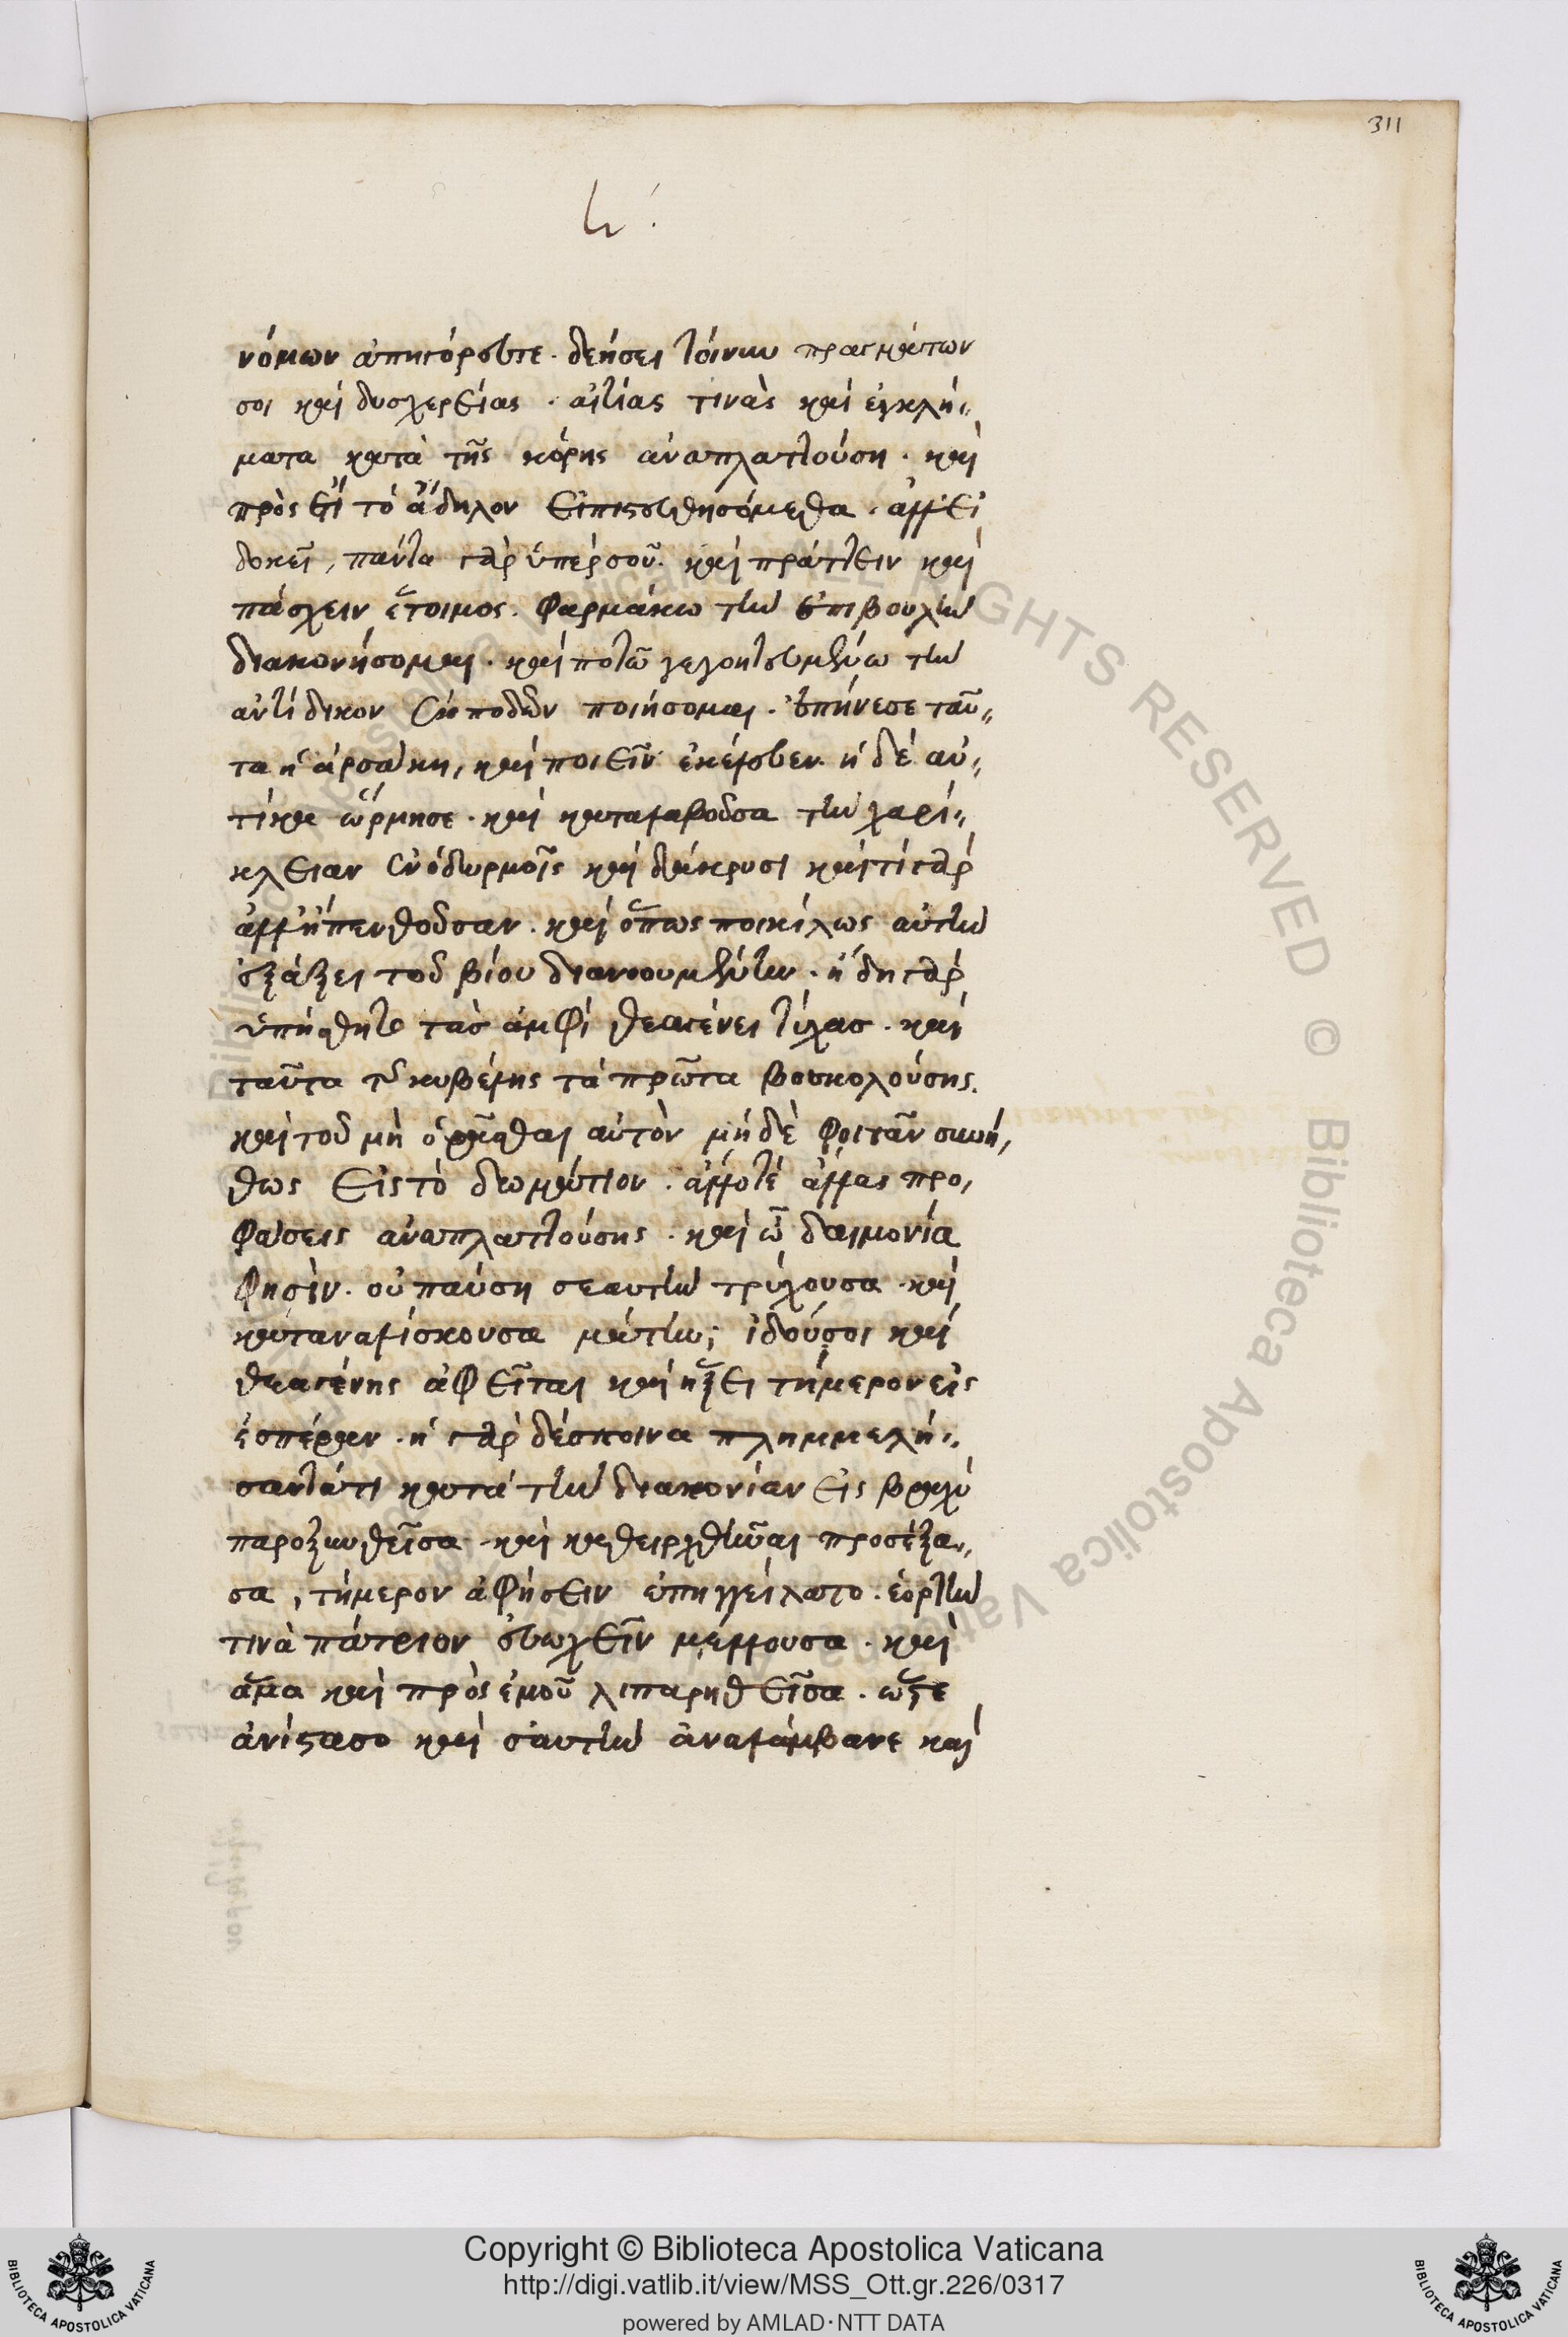 311
νόμων ἀπηγόρευτε· δεήσει τοίνυν πραγμάτων
σοι καὶ δυσχερείας· αἰτίας τινὰς καὶ ἐγκλή„
ματα κατὰ τῆς κόρης ἀναπλαττούση· καὶ
πρὸς ἔτι τὸ ἄδηλον εἰ πιστευθησόμεθα· ἀλλ' εἰ
δοκεῖ, πάντα γὰρ ὑπὲρ σοῦ· καὶ πράττειν καὶ
πάσχειν ἕτοιμος. φαρμάκω τὴν ἐπιβουλὴν
διακονήσομαι· καὶ ποτῶ γεγοητευμένω τὴν
ἀντίδικον ἐκποδὼν ποιήσομαι· ἐπήνεσε ταῦ„
τα ἡ ἀρσάκη, καὶ ποιεῖν ἐκέλευεν· ἡ δὲ αὐ„
τίκα ὥρμησε· καὶ καταλαβοῦσα τὴν χαρί„
κλειαν ἐν ὀδυρμοῖς καὶ δάκρυσι καὶ τί γὰρ
ἀλλ' ἢ πενθοῦσαν· καὶ ὅπως ποικίλως αὑτὴν
ἐξάξει τοῦ βίου διανοουμένην· ἤδη γὰρ
ὑπήσθητο τὰς ἀμφὶ θεαγένει τύχας· καὶ
ταῦτα τῆς κυβέλης τὰ πρῶτα βουκολούσης.
καὶ τοῦ μὴ ὁρᾶσθαι αὐτὸν μήδὲ φοιτᾶν συνή,
θως εἰς τὸ δωμάτιον· ἄλλοτέ ἄλλας προ,
φάσεις ἀναπλαττούσης· καὶ ὦ δαιμονία
φησὶν· οὐ παύση σεαυτὴν τρύχουσα· καὶ
καταναλίσκουσα μάτην; ἰδού σοι καὶ
θεαγένης ἀφεῖται καὶ ἥξει τήμερον εἰς
ἑσπέραν· ἡ γὰρ δέσποινα πλημμελή„
σαντάτι κατὰ τὴν διακονίαν εἰς βραχὺ
παροξυνθεῖσα καὶ καθειρχθῆναι προσέξα„
σα, τήμερον ἀφήσειν ἐπηγγείλατο· ἑορτὴν
τινὰ πάτριον εὐωχεῖν μέλλουσα· καὶ
ἅμα καὶ πρὸς ἐμοῦ λιπαρηθεῖσα· ὥστε
ἀνίστασο καὶ σαυτὴν ἀναλάμβανε καὶ
Copyright © Biblioteca Apostolica Vaticana
http://digi.vatlib.it/view/MSS_Ott.gr.226/0317
powered by AMLAD·NTT DATA